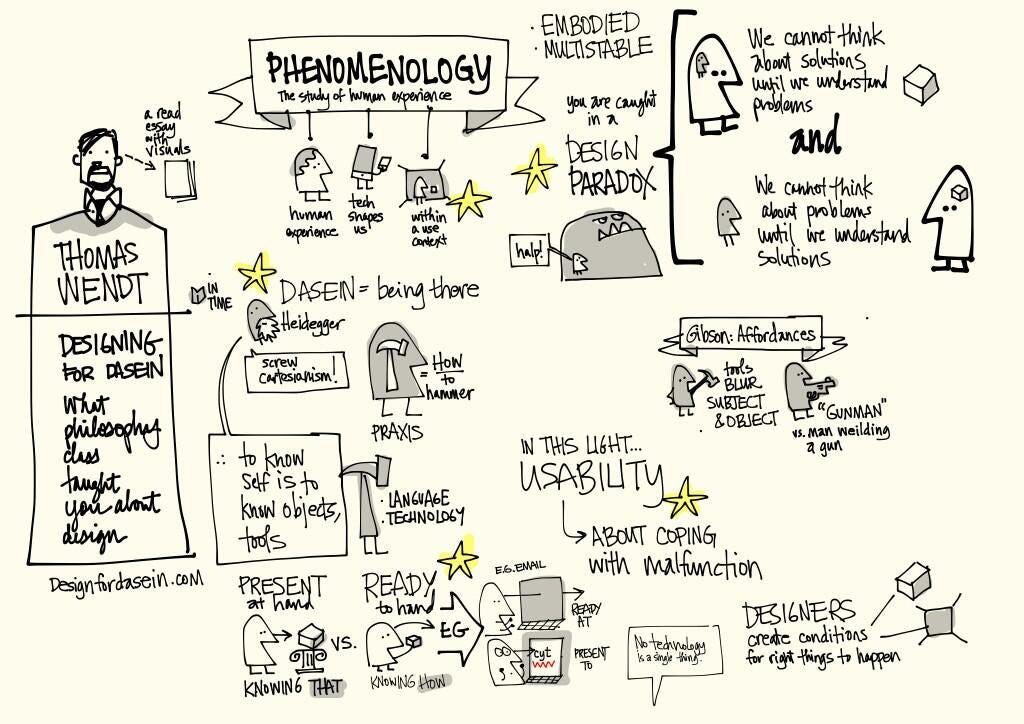 PHENOMENOLOGY
The study of human experience
human
experience
tech
shapes
us
within
a use
context
a read
essay
with
visuals
THOMAS
WENDT
DESIGNING
FOR DASEIN
What
philosophy
class
taught
you about
design
Designfordasein.com
· EMBODIED
· MULTISTABLE
you are caught
in a
DESIGN
PARADOX
halp!
We cannot think
about solutions
until we understand
problems
and
We cannot think
about problems
until we understand
solutions
IN
TIME
DASEIN = being there
Heidegger
screw
cartesianism!
= HOW
to
hammer
PRAXIS
∴ to know
self is to
know objects,
tools
· LANGUAGE
· TECHNOLOGY
Gibson: Affordances
tools
BLUR
SUBJECT
& OBJECT
"GUNMAN"
vs. man weilding
a gun
IN THIS LIGHT...
USABILITY
ABOUT COPING
with malfunction
PRESENT
at hand
VS.
KNOWING THAT
READY
to hand
KNOWING HOW
EG
E.G. EMAIL
READY
AT
cyt
PRESENT
TO
No technology
is a single thing.
DESIGNERS
create conditions
for right things to happen